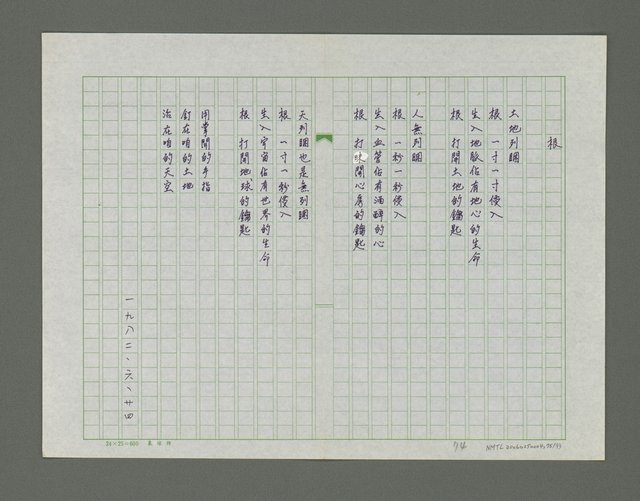 根
土地列國
根 一寸一寸侵入
生入地脈佔有地心的生命
根 打開土地的鑰匙
人無列國
根 一秒一秒侵入
生入血管佔有酒醉的心
根 打開心房的鑰匙
天列國也是無列國
根 一寸一秒侵入
生入宇宙佔有世界的生命
根 打開地球的鑰匙
用掌開的手指
釘在咱的土地
治在咱的天空
一九八二、六、廿四
24×25=600
74